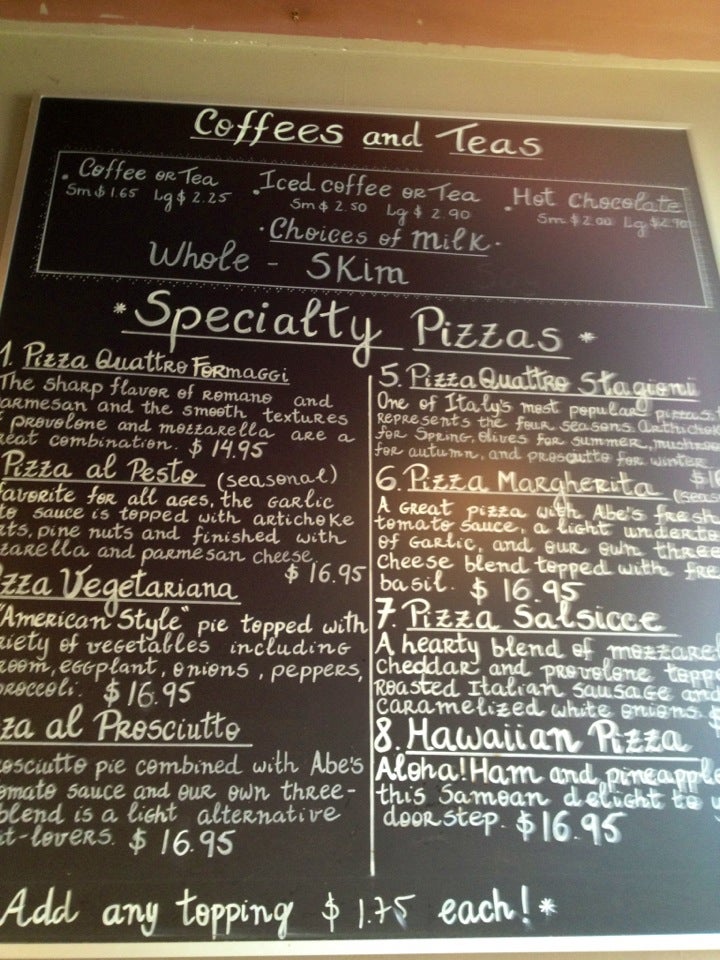 Coffees and Teas
• Coffee or Tea
Sm $ 1.65 Lg $ 2.25
• Iced coffee or Tea
Sm $ 2.50 Lg $ 2.90
• Hot Chocolate
Sm $ 2.00 Lg $2.90
• Choices of Milk •
Whole - Skim
* Specialty Pizzas *
1. Pizza Quattro Formaggi
The sharp flavor of romano and
armesan and the smooth textures
f provolone and mozzarella are a
reat combination. $ 14.95
Pizza al Pesto (seasonal)
favorite for all ages, the garlic
to sauce is topped with artichoke
rts, pine nuts and finished with
zarella and parmesan cheese
$ 16.95
zza Vegetariana
"American Style" pie topped with
riety of vegetables including
room, eggplant, onions, peppers,
broccoli. $ 16.95
za al Prosciutto
rosciutto pie combined with Abe's
omato sauce and our own three-
blend is a light alternative
at-lovers. $ 16.95
5. Pizza Quattro Stagioni
One of Italy's most popular pizzas. I
represents the four seasons. Arthichok
for Spring, Olives for summer, mushroo
for autumn, and prosciutto for winter
$ 1
6. Pizza Margherita (seas
A great pizza with Abe's fresh
tomato sauce, a light underto
of garlic, and our own three
cheese blend topped with fre
basil. $ 16.95
7. Pizza Salsicce
A hearty blend of mozzarel
Cheddar and provolone topp
Roasted Italian sausage and
caramelized white onions $
8. Hawaiian Pizza
Aloha! Ham and pineapple
this Samoan delight to y
doorstep. $ 16.95
Add any topping $ 1.75 each! *